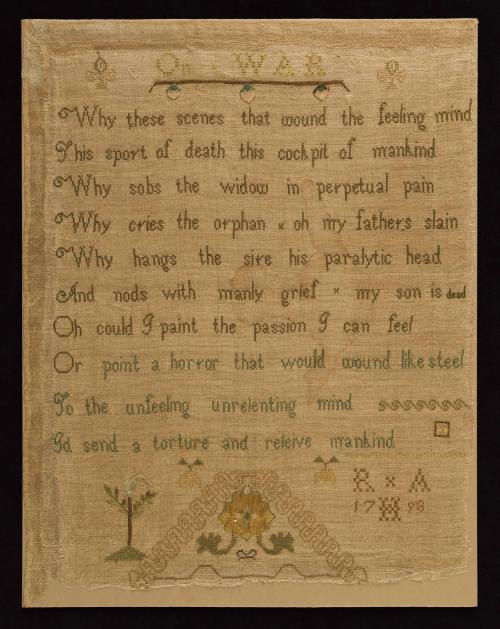 On × WAR
Why these scenes that wound the feeling mind
This sport of death this cockpit of mankind
Why sobs the widow in perpetual pain
Why cries the orphan × oh my fathers slain
Why hangs the sire his paralytic head
And nods with manly grief × my son is dead
Oh could I paint the passion I can feel
Or point a horror that would wound like steel
To the unfeeling unrelenting mind
Id send a torture and releive mankind
R × A
17 98